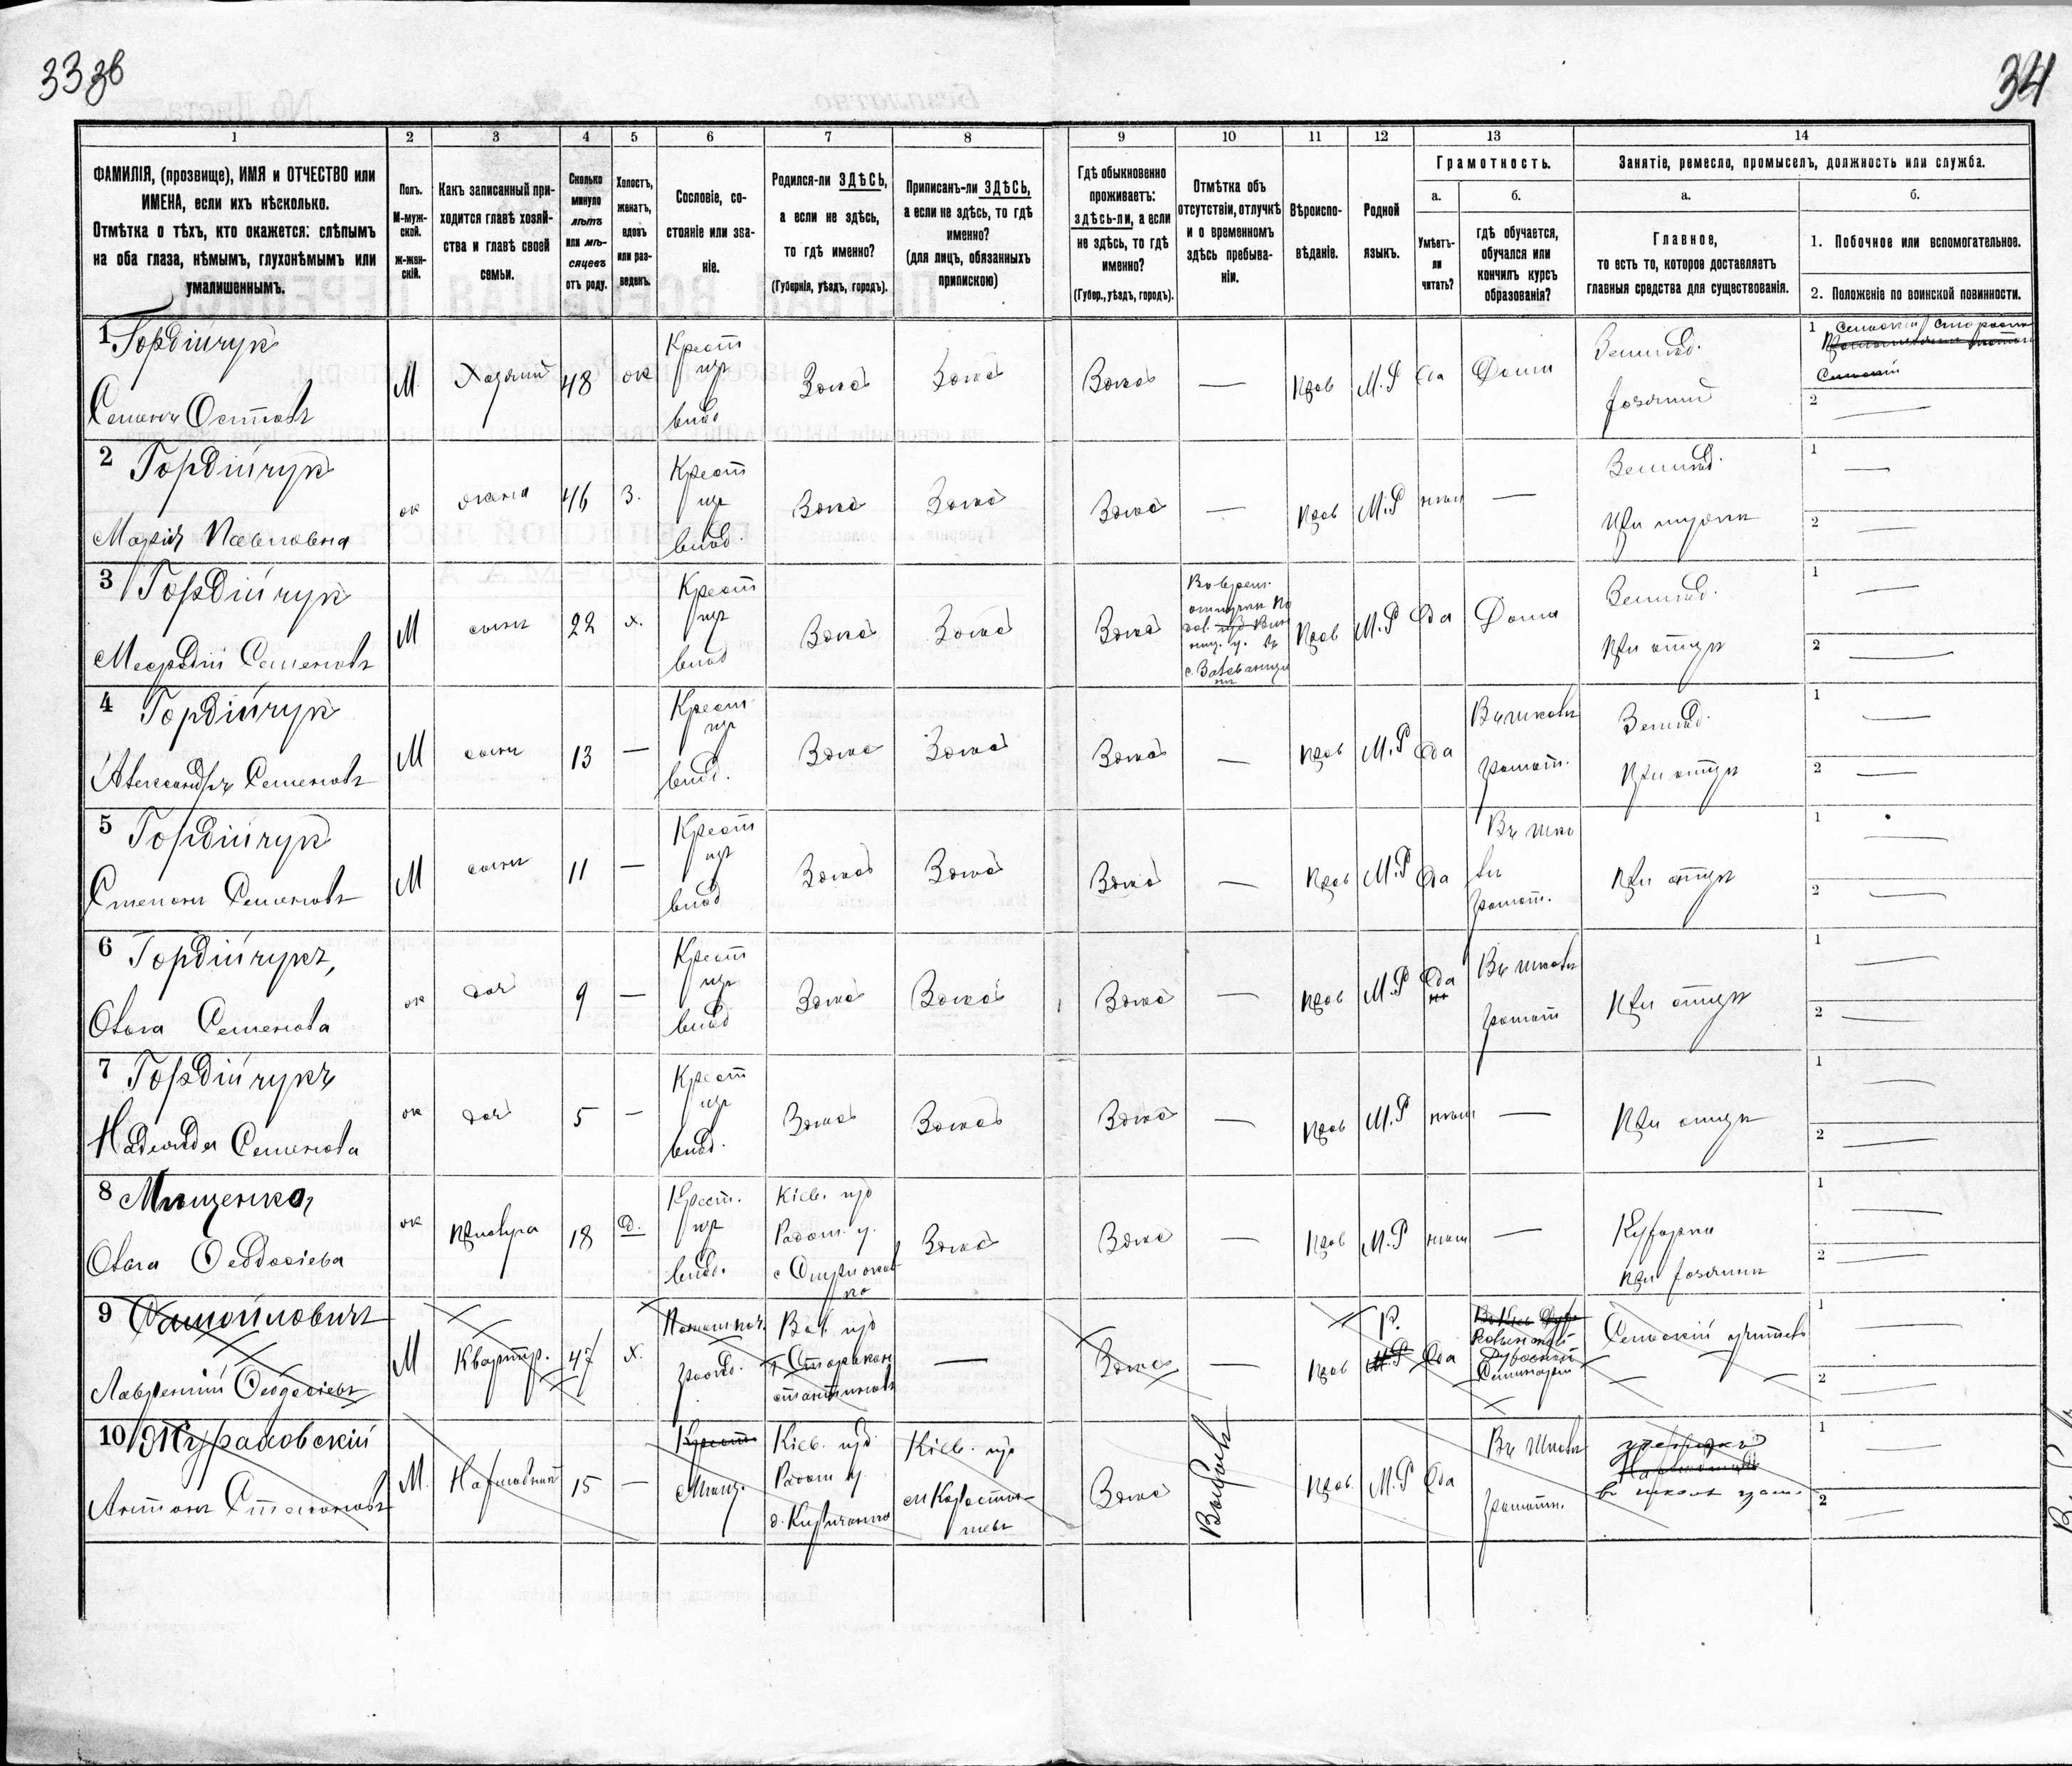 33 зв
34
1 2 3 4 5 6 7 8 9 10 11 12 13 14
ФАМИЛІЯ, (прозвище), ИМЯ и ОТЧЕСТВО или
ИМЕНА, если ихъ нѣсколько.
Отмѣтка о тѣхъ, кто окажется: слѣпымъ
на оба глаза, нѣмымъ, глухонѣмымъ или
умалишеннымъ.
Полъ.
М-муж-
ской.
ж-жен-
скій.
Какъ записанный при-
ходится главѣ хозяй-
ства и главѣ своей
семьи.
Сколько
минуло
лѣтъ
или мѣ-
сяцевъ
отъ роду.
Холостъ,
женатъ,
вдовъ
или раз-
веденъ.
Сословіе, со-
стояніе или зва-
ніе.
Родился-ли ЗДѢСЬ,
а если не здѣсь,
то гдѣ именно?
(Губернія, уѣздъ, городъ).
Приписанъ-ли ЗДѢСЬ,
а если не здѣсь, то гдѣ
именно?
(для лицъ, обязанныхъ
припискою)
Гдѣ обыкновенно
проживаетъ:
здѣсь-ли, а если
не здѣсь, то гдѣ
именно?
(Губер., уѣздъ, городъ).
Отмѣтка объ
отсутствіи, отлучкѣ
и о временномъ
здѣсь пребыва-
ніи.
Вѣроиспо-
вѣданіе.
Родной
языкъ.
Грамотность.
а.
Умѣетъ-
ли
читать?
б.
гдѣ обучается,
обучался или
кончилъ курсъ
образованія?
Занятіе, ремесло, промыселъ, должность или служба.
а.
Главное,
то есть то, которое доставляетъ
главныя средства для существованія.
б.
1. Побочное или вспомогательное.
2. Положеніе по воинской повинности.
1 Гордійчукъ
Семенъ Остаповъ
М Хозяинъ 48 ж Крест изъ влад Здесь Здесь Здесь — прав М.Р Да Дома
Землед. хозяинъ
1 Сельскій староста
2 —
2 Гордійчукъ
Марія Павловна
ж жена 46 З. Крест изъ влад. Здесь Здесь Здесь — прав М.Р —
Землед. При мужѣ
1 —
2 —
3 Гордійчукъ
Семеновъ
М сынъ 22 х. Крест изъ влад Здесь Здесь Здесь
прав М.Р Да Дома
Землед. При отцѣ
1 —
2 —
4 Гордійчукъ
Александръ Семеновъ
М сынъ 13 — Крест. изъ влад. Здесь Здесь Здесь — прав М.Р Да Въ школѣ грамот.
Землед. При отцѣ
1 —
2 —
5 Гордійчукъ
Степанъ Семеновъ
М сынъ 11 — Крест изъ влад Здесь Здесь Здесь — прав М.Р Да Въ шко лѣ грамот.
При отцѣ
1 —
2 —
6 Гордійчукъ,
Ольга Семенова
ж дочь 9 — Крест изъ влад Здесь Здесь Здесь — прав М.Р Да Въ школѣ грамот
При отцѣ
1 —
2 —
7 Гордійчукъ
Надежда Семенова
ж дочь 5 — Крест изъ влад. Здесь Здесь Здесь — прав М.Р —
При отцѣ
1 —
2 —
8 Мищенко,
Ольга Феодосіева
ж прислуга 18 д. Крест. изъ влад.
Кіев. губ
Радом. у.
Здесь Здесь — прав М.Р —
Кухарка
при хозяинѣ
1 —
2 —
9 Самойловичъ
Лаврентій Феодосіевъ
М Квартир. 47 х. гражд.
Вол. губ
Староконстантиновъ
— Здесь — прав Р. Да
Семинаріи
Сельскій учитель
1 —
2 —
10 Журановскій
Антонъ Степановъ
М Нахлебникъ 15 — Мѣщ.
Кіев. губ
Радом у.
Кіев. губ
Здесь Выбылъ прав. М.Р Да Въ школѣ грамотн.
1 —
2 —